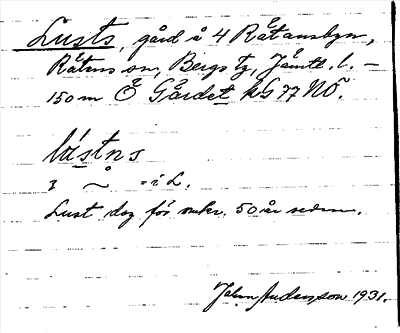 Lusts, gård å 4 Råtansbyn,
Råtans sn, Bergs tg, Jämtl. l. –
150 m Ö Gårdet kG 77 NÖ.
lústns
i ~ = i L.
Lust dog för omkr. 50 år sedan.
John Andersson 1931.